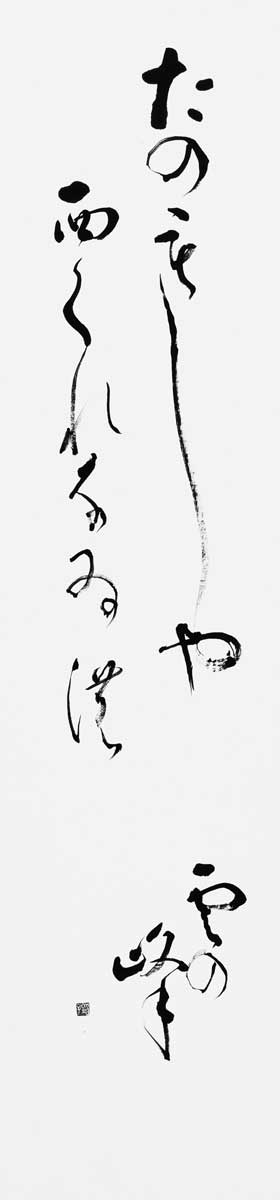 たのもしや
西くれなゐの
雲の峰